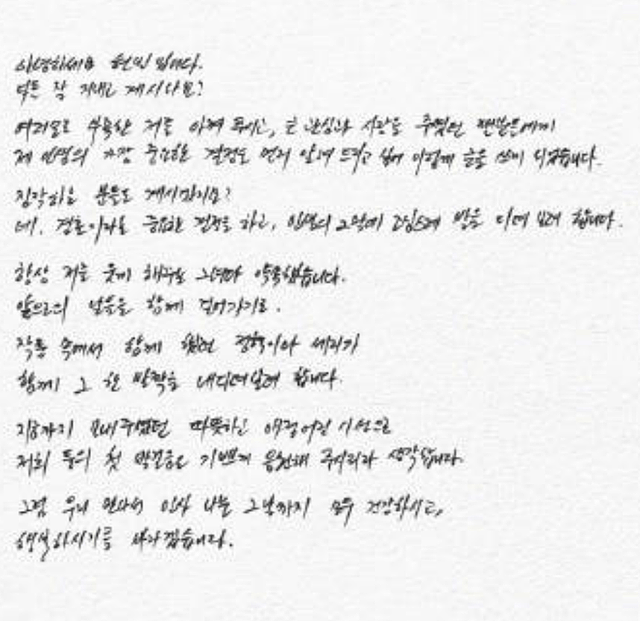 안녕하세요 현빈 입니다.
다들 잘 지내고 계시나요?
여러모로 부족한 저를 아껴 주시고, 큰 관심과 사랑을 주셨던 팬분들에게
제 인생의 가장 중요한 결정도 먼저 알려 드리고 싶어 이렇게 글을 쓰게 되었습니다.
짐작하는 분들도 계시겠지요?
네. 결혼이라는 중요한 결정을 하고, 인생의 2막에 조심스레 발을 디뎌 보려 합니다.
항상 저를 웃게 해주는 그녀와 약속했습니다.
앞으로의 날들을 함께 걸어가기로.
작품 속에서 함께 했던 정혁이와 세리가
함께 그 한 발짝을 내디뎌보려 합니다.
지금까지 보내주셨던 따뜻하고 애정어린 시선으로
저희 둘의 첫 발걸음도 기쁘게 응원해 주시리라 생각됩니다.
그럼 우리 만나서 인사 나눌 그날까지 모두 건강하시고,
행복하시기를 바라겠습니다.